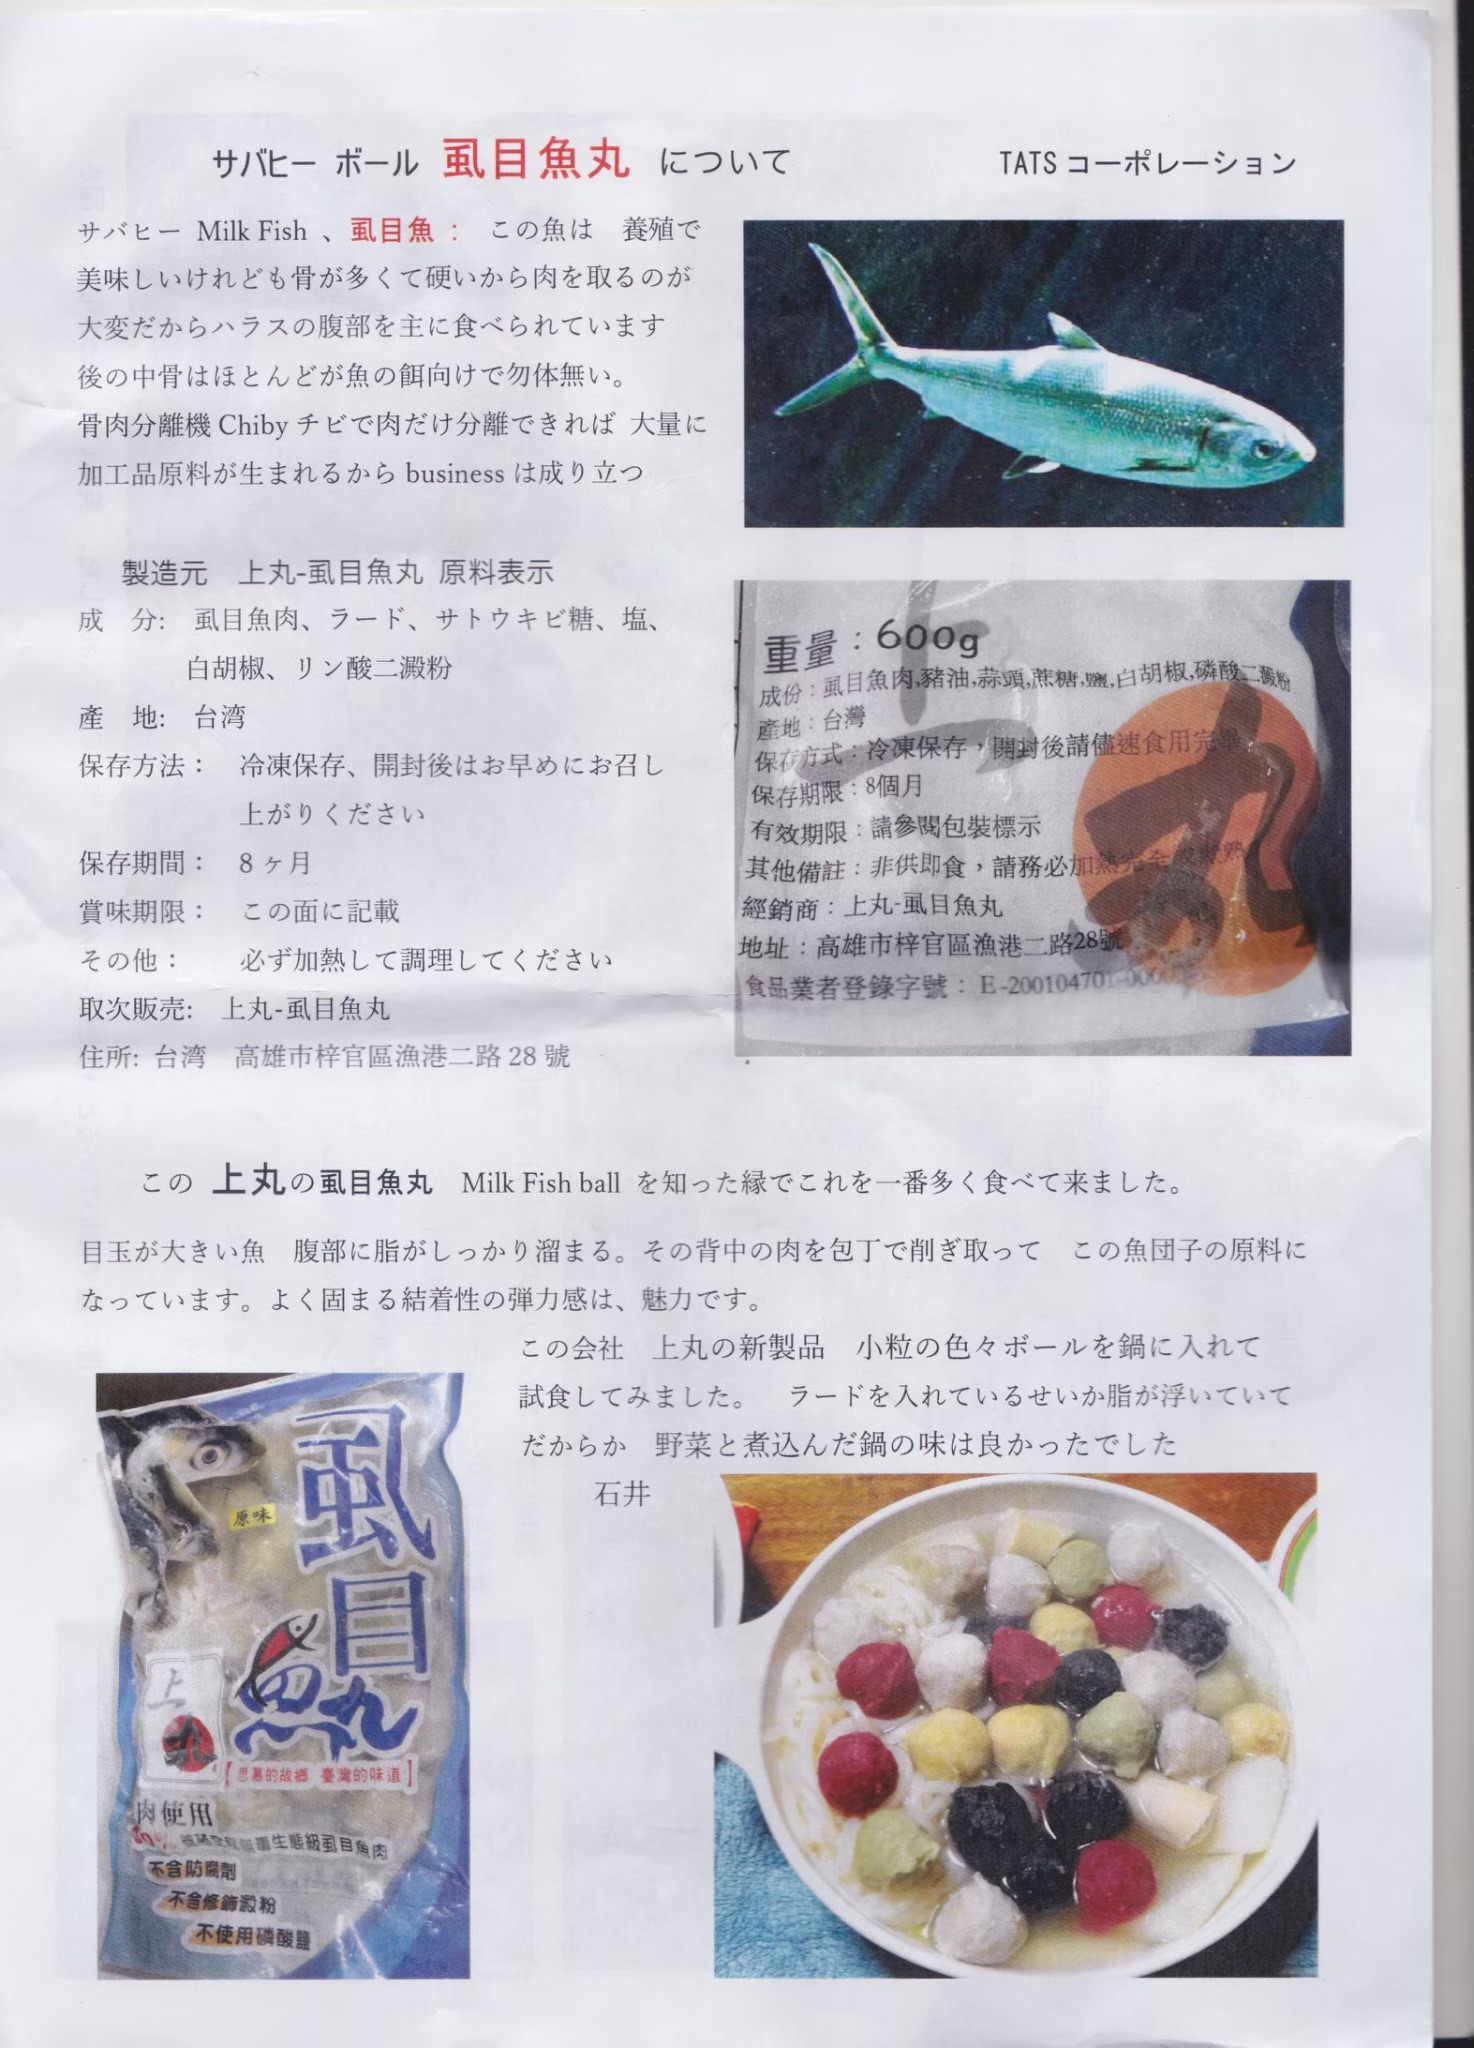 サバヒー ボール 虱目魚丸 について TATS コーポレーション
サバヒー Milk Fish 、虱目魚 : この魚は 養殖で
美味しいけれども骨が多くて硬いから肉を取るのが
大変だからハラスの腹部を主に食べられています
後の中骨はほとんどが魚の餌向けで勿体無い。
骨肉分離機 Chiby チビで肉だけ分離できれば 大量に
加工品原料が生まれるから business は成り立つ
製造元 上丸-虱目魚丸 原料表示
成 分: 虱目魚肉、ラード、サトウキビ糖、塩、
白胡椒、リン酸二澱粉
産 地: 台湾
保存方法： 冷凍保存、開封後はお早めにお召し
上がりください
保存期間： 8 ヶ月
賞味期限： この面に記載
その他： 必ず加熱して調理してください
取次販売: 上丸-虱目魚丸
住所: 台湾 高雄市梓官區漁港二路 28 號
上丸
重量：600g
成份：虱目魚肉,豬油,蒜頭,蔗糖,鹽,白胡椒,磷酸二澱粉
產地：台灣
保存方式：冷凍保存，開封後請儘速食用完畢
保存期限：8個月
有效期限：請參閱包裝標示
其他備註：非供即食，請務必加熱完全
經銷商：上丸-虱目魚丸
地址：高雄市梓官區漁港二路28號
食品業者登錄字號：E-200104701-00
この 上丸の虱目魚丸 Milk Fish ball を知った縁でこれを一番多く食べて来ました。
目玉が大きい魚 腹部に脂がしっかり溜まる。その背中の肉を包丁で削ぎ取って この魚団子の原料に
なっています。よく固まる結着性の弾力感は、魅力です。
この会社 上丸の新製品 小粒の色々ボールを鍋に入れて
試食してみました。 ラードを入れているせいか脂が浮いていて
だからか 野菜と煮込んだ鍋の味は良かったでした
石井
原味
虱目魚丸
上丸
【思慕的故鄉 臺灣的味道】
肉使用
生態級虱目魚肉
不含防腐劑
不含修飾澱粉
不使用磷酸鹽